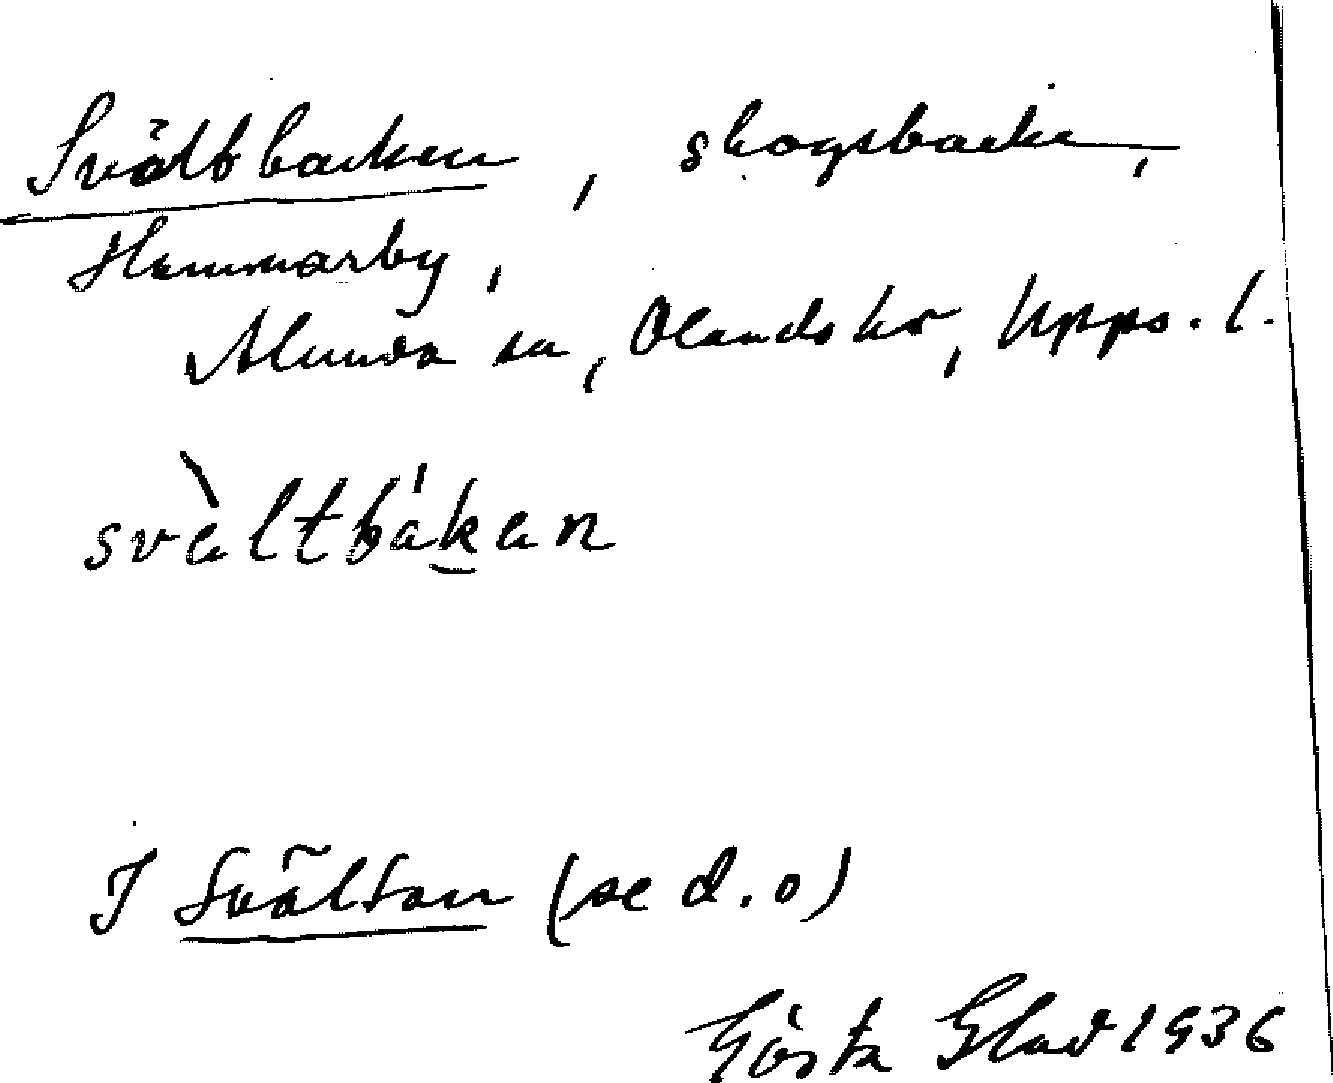 Svältbacken, skogsbacke,
Hammarby,
Alunda sn, Olands hr, Upps. l.
svàltbákan
I Svältan (se d.o)
Gösta Glad 1936